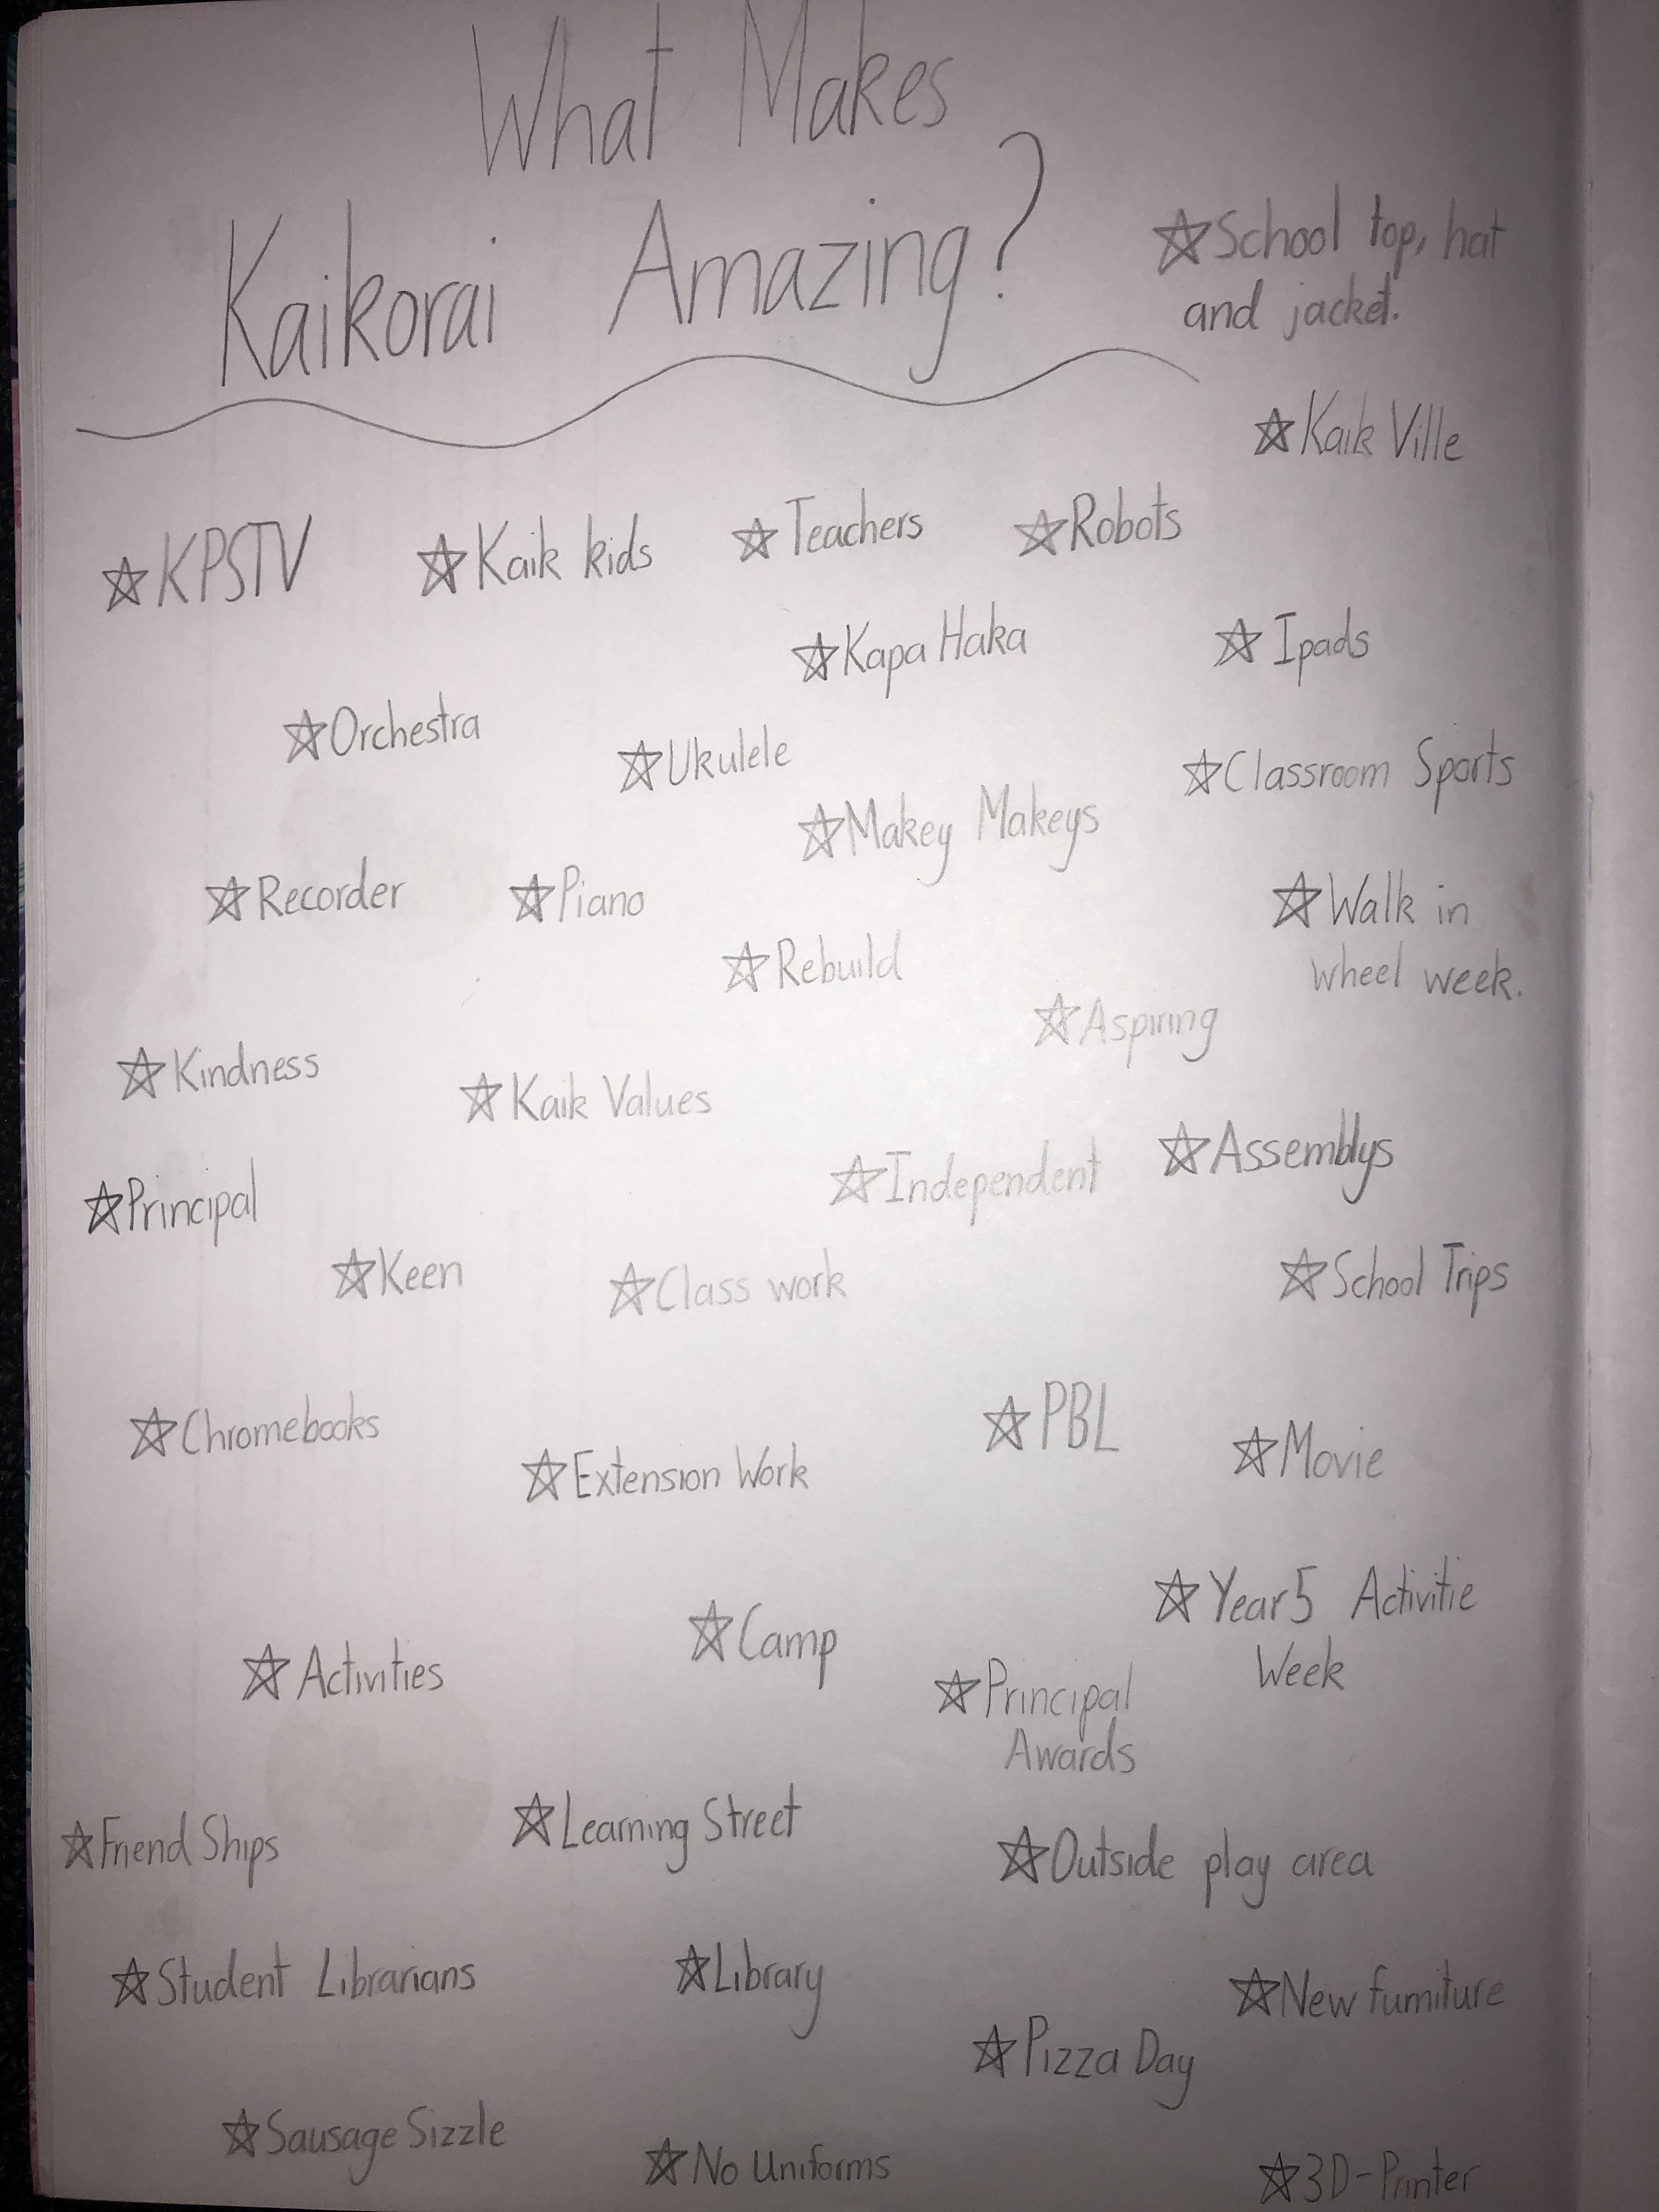 What Makes
Kaikorai Amazing?
☆School top, hat
and jacket.
☆Kaik Ville
☆KPSTV ☆Kaik kids ☆Teachers ☆Robots
☆Kapa Haka ☆Ipads
☆Orchestra ☆Ukulele ☆Classroom Sports
☆Makey Makeys
☆Recorder ☆Piano ☆Walk in
wheel week.
☆Rebuild
☆Aspiring
☆Kindness ☆Kaik Values
☆Independent ☆Assemblys
☆Principal
☆Keen ☆Class work ☆School Trips
☆Chromebooks ☆PBL ☆Movie
☆Extension Work
☆Year 5 Activitie
Week
☆Activities ☆Camp
☆Principal
Awards
☆Friend Ships ☆Learning Street ☆Outside play area
☆Student Librarians ☆Library ☆New furniture
☆Pizza Day
☆Sausage Sizzle ☆No Uniforms ☆3D-Printer